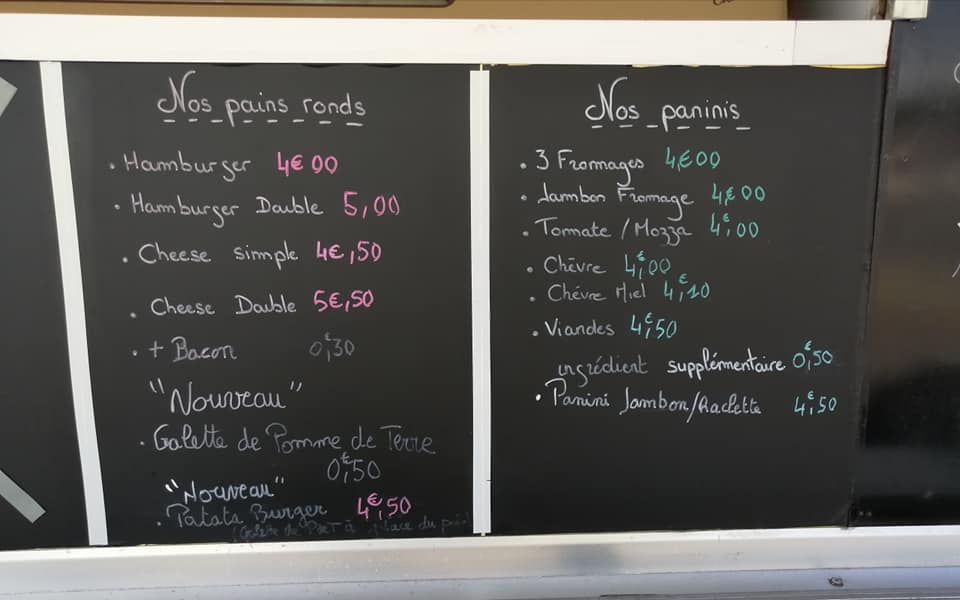 Nos pains ronds
. Hamburger 4€00
. Hamburger Double 5,00
. Cheese simple 4€,50
. Cheese Double 5€,50
. + Bacon 0€,30
"Nouveau"
. Galette de Pomme de Terre
0€,50
"Nouveau"
. Patata Burger 4€,50
(Galette de P.de T à place du pain)
Nos paninis
. 3 Fromages 4€00
. Jambon Fromage 4€00
. Tomate / Mozza 4€,00
. Chèvre 4€,00
. Chèvre Miel 4€,10
. Viandes 4€,50
ingrédient supplémentaire 0€,50
. Panini Jambon/Raclette 4€,50